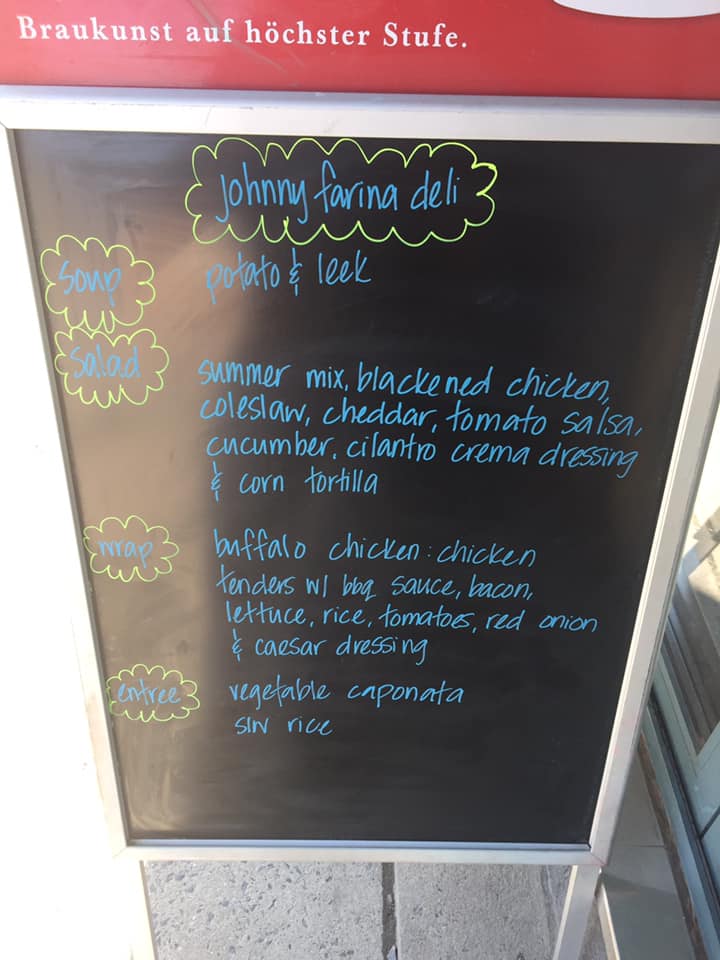 Braukunst auf höchster Stufe.
johnny farina deli
soup potato & leek
salad summer mix, blackened chicken,
coleslaw, cheddar, tomato salsa,
cucumber, cilantro crema dressing
& corn tortilla
wrap buffalo chicken: chicken
tenders w/ bbq sauce, bacon,
lettuce, rice, tomatoes, red onion
& caesar dressing
entree vegetable caponata
s/w rice